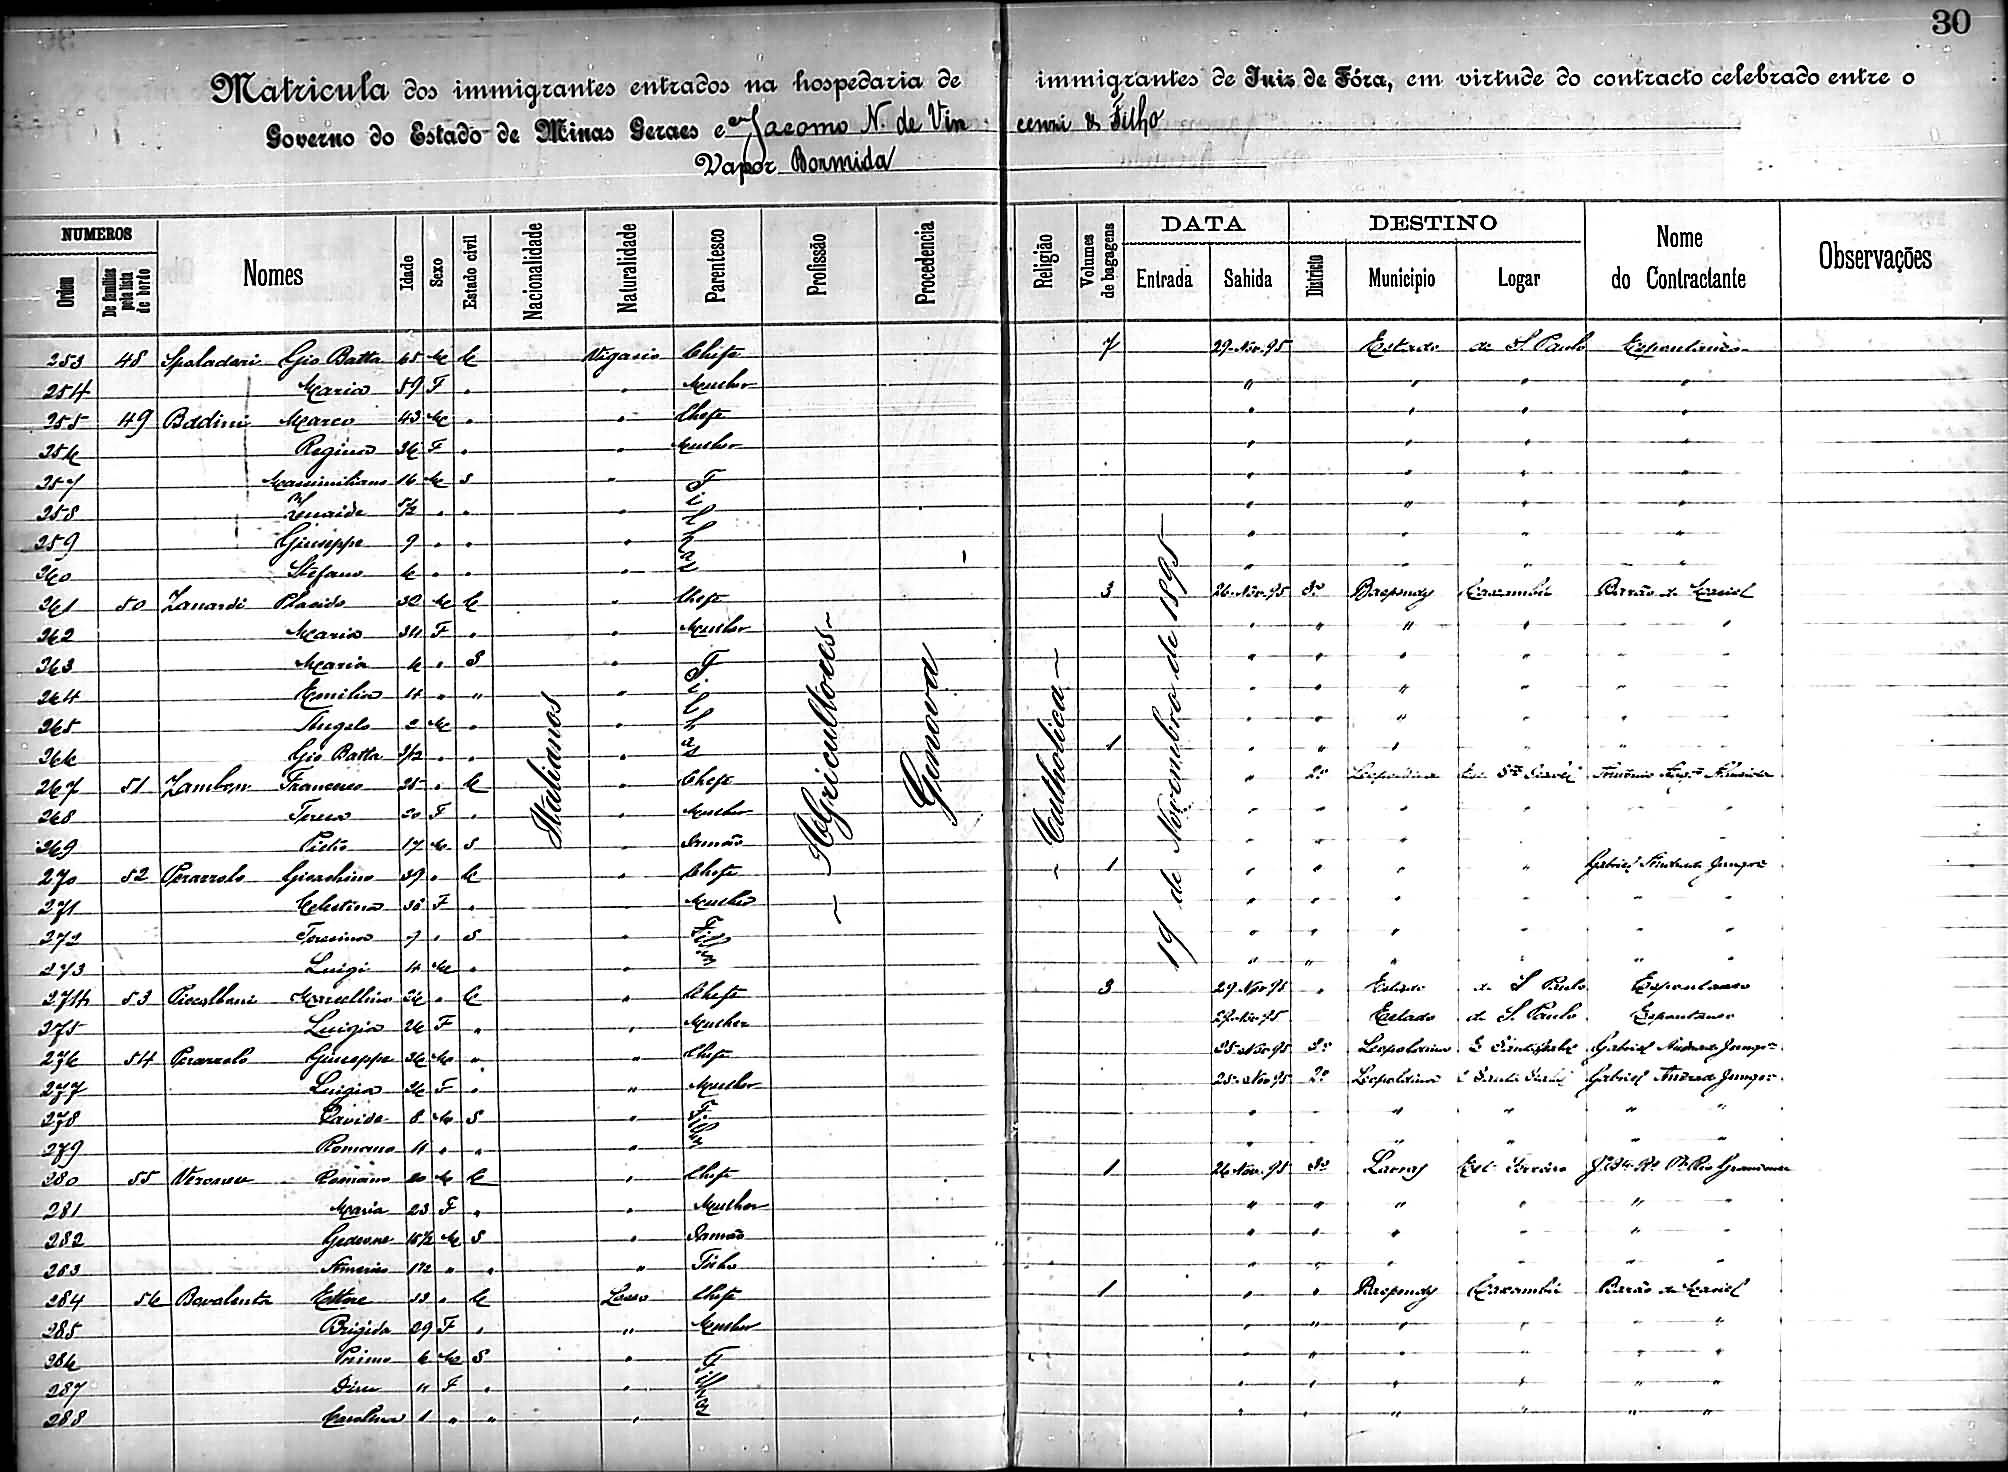 30
Matricula dos immigrantes entrados na hospedaria de immigrantes de Juiz de Fóra, em virtude do contracto celebrado entre o
Governo do Estado de Minas Geraes e Jacomo N. de Vincenzi & Filho
Vapor Bormida
NUMEROS
Ordem
De familias pela lista de bordo
Nomes
Idade
Sexo
Estado civil
Nacionalidade
Naturalidade
Parentesco
Profissão
Procedencia
Religião
Volumes de bagagens
DATA
Entrada
Sahida
DESTINO
Districto
Municipio
Logar
Nome do Contractante
Observações
Italianos
Agricultores
Genova
Catholica
19 de Novembro de 1895
253 48 Gio Batta 65 M C Vigasio Chefe 7 29 Nov. 95 Estado de S. Paulo Espontaneo
254 Maria 59 F " " Mulher " " " "
255 49 Marco 43 M " " Chefe " " " "
256 Regina 36 F " " Mulher " " " "
257 Massimiliano 16 M S " Filhos " " " "
258 " " " " " " "
259 Giuseppe 9 " " " " " " "
260 Stefano 6 " " " " " " "
261 50 Zanardi Placido 30 M C " Chefe 3 26 Nov. 95 3º Baependy Caxambú Barão de Maciel
262 Maria 34 F " " Mulher " " " " " "
263 Maria 6 " S " Filhos " " " " " "
264 Emilia 4 " " " " " " " " "
265 Angelo 2 M " " " " " " " "
266 Gio Batta " " " 1 " " " " " "
267 51 Zambon Francesco 25 " C " Chefe " 2º Leopoldina
268 Teresa 20 F " " Mulher " " " " " "
269 Pietro 17 M S " Irmão " " " " " "
270 52 Perazzolo Gioachino 39 " C " Chefe 1 " " " " Gabriel Andrade Junqra
271 Celestina 38 F " " Mulher " " " " " "
272 Teresina 7 " S " Filhos " " " " " "
273 Luigi 4 M " " " " " " " "
274 53 Marcellino 26 " C " Chefe 3 29 Nov 95 " Estado de S. Paulo Espontaneo
275 Luigia 26 F " " Mulher 29 Nov 95 Estado de S. Paulo Espontaneo
276 54 Perazzolo Giuseppe 36 M " " Chefe 25 Nov 95 2º Leopoldina Gabriel Andrade Junqra
277 Luigia 26 F " " Mulher 25 Nov 95 2º Leopoldina Gabriel Andrade Junqra
278 Davide 8 M S " Filhos " " " " " "
279 Romano 4 " " " " " " " "
280 55 Romano 20 M C " Chefe 1 26 Nov. 95 3º
281 Maria 23 F " " Mulher " " " " " "
282 Gedeone M S " Irmão " " " " " "
283 " " " Filho " " " " " "
284 56 Bovalenta Ettore 33 " C Chefe 1 " " Baependy Caxambú Barão de Maciel
285 Brigida 29 F " " Mulher " " " " " "
286 Primo 6 M S " Filhos " " " " "
287 " F " " " " " " " "
288 Carolina 1 " " " " " " " " "